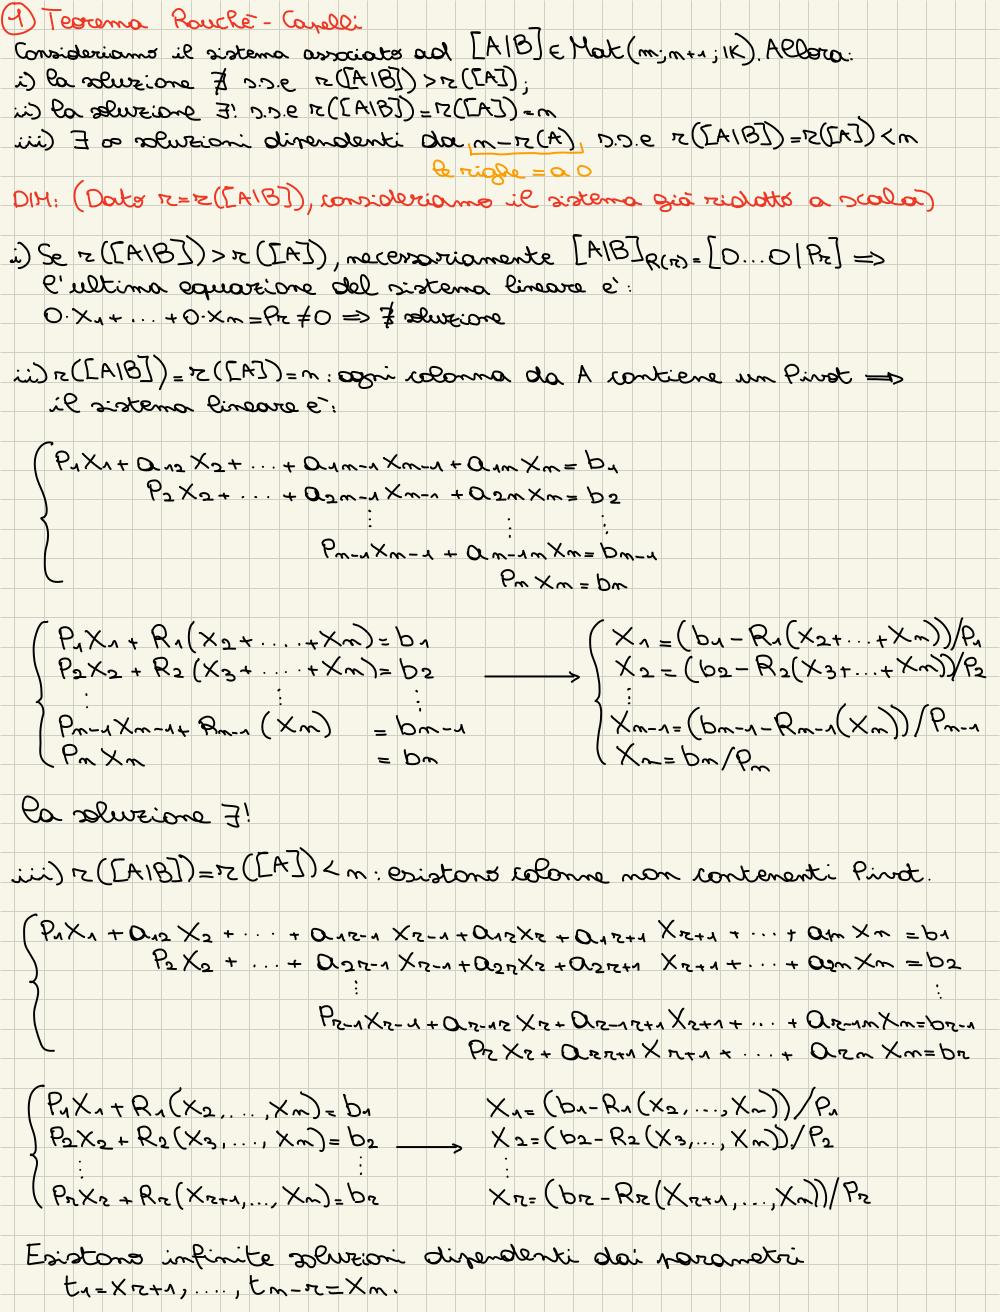 ① Teorema Rouchè-Capelli
Consideriamo il sistema associato ad [A|B] ∈ Mat(m;n+1;K). Allora:
i) la soluzione ∄ s.s.e r([A|B]) > r([A]);
ii) la soluzione ∃! s.s.e r([A|B]) = r([A]) = n
iii) ∃ ∞ soluzioni dipendenti da n-r(A) s.s.e r([A|B]) = r([A]) < n
le righe = a 0
DIM: (Dato r=r([A|B]), consideriamo il sistema già ridotto a scala)
i) Se r([A|B]) > r([A]), necessariamente [A|B]R(r) = [0...0|Pr] ⟹
l'ultima equazione del sistema lineare è:
0·X1+ ... +0·Xn = Pr ≠ 0 ⟹ ∄ soluzione
ii) r([A|B]) = r([A]) = n: ogni colonna da A contiene un Pivot ⟹
il sistema lineare è:
P1X1 + a12 X2 + ... + a1n-1 Xn-1 + a1n Xn = b1
P2X2 + ... + a2n-1 Xn-1 + a2n Xn = b2
⋮ ⋮ ⋮
Pn-1Xn-1 + an-1n Xn = bn-1
Pn Xn = bn
P1X1 + R1(X2+....+Xn) = b1 → X1 = (b1-R1(X2+...+Xn))/P1
P2X2 + R2(X3+....+Xn) = b2 X2 = (b2-R2(X3+...+Xn))/P2
⋮ ⋮ ⋮ ⋮
Pn-1Xn-1 + Rn-1(Xn) = bn-1 Xn-1 = (bn-1-Rn-1(Xn))/Pn-1
Pn Xn = bn Xn = bn/Pn
la soluzione ∃!
iii) r([A|B]) = r([A]) < n: esistono colonne non contenenti Pivot.
P1X1 + a12 X2 + ... + a1r-1 Xr-1 + a1r Xr + a1r+1 Xr+1 + ... + a1n Xn = b1
P2X2 + ... + a2r-1 Xr-1 + a2r Xr + a2r+1 Xr+1 + ... + a2n Xn = b2
⋮ ⋮
Pr-1Xr-1 + ar-1r Xr + ar-1r+1 Xr+1 + ... + ar-1n Xn = br-1
Pr Xr + arr+1 Xr+1 + ... + arn Xn = br
P1X1 + R1(X2,...,Xn) = b1 X1 = (b1-R1(X2,...,Xn))/P1
P2X2 + R2(X3,...,Xn) = b2 → X2 = (b2-R2(X3,...,Xn))/P2
⋮ ⋮ ⋮
PrXr + Rr(Xr+1,...,Xn) = br Xr = (br-Rr(Xr+1,...,Xn))/Pr
Esistono infinite soluzioni dipendenti dai parametri
t1 = Xr+1, ...., tn-r = Xn.